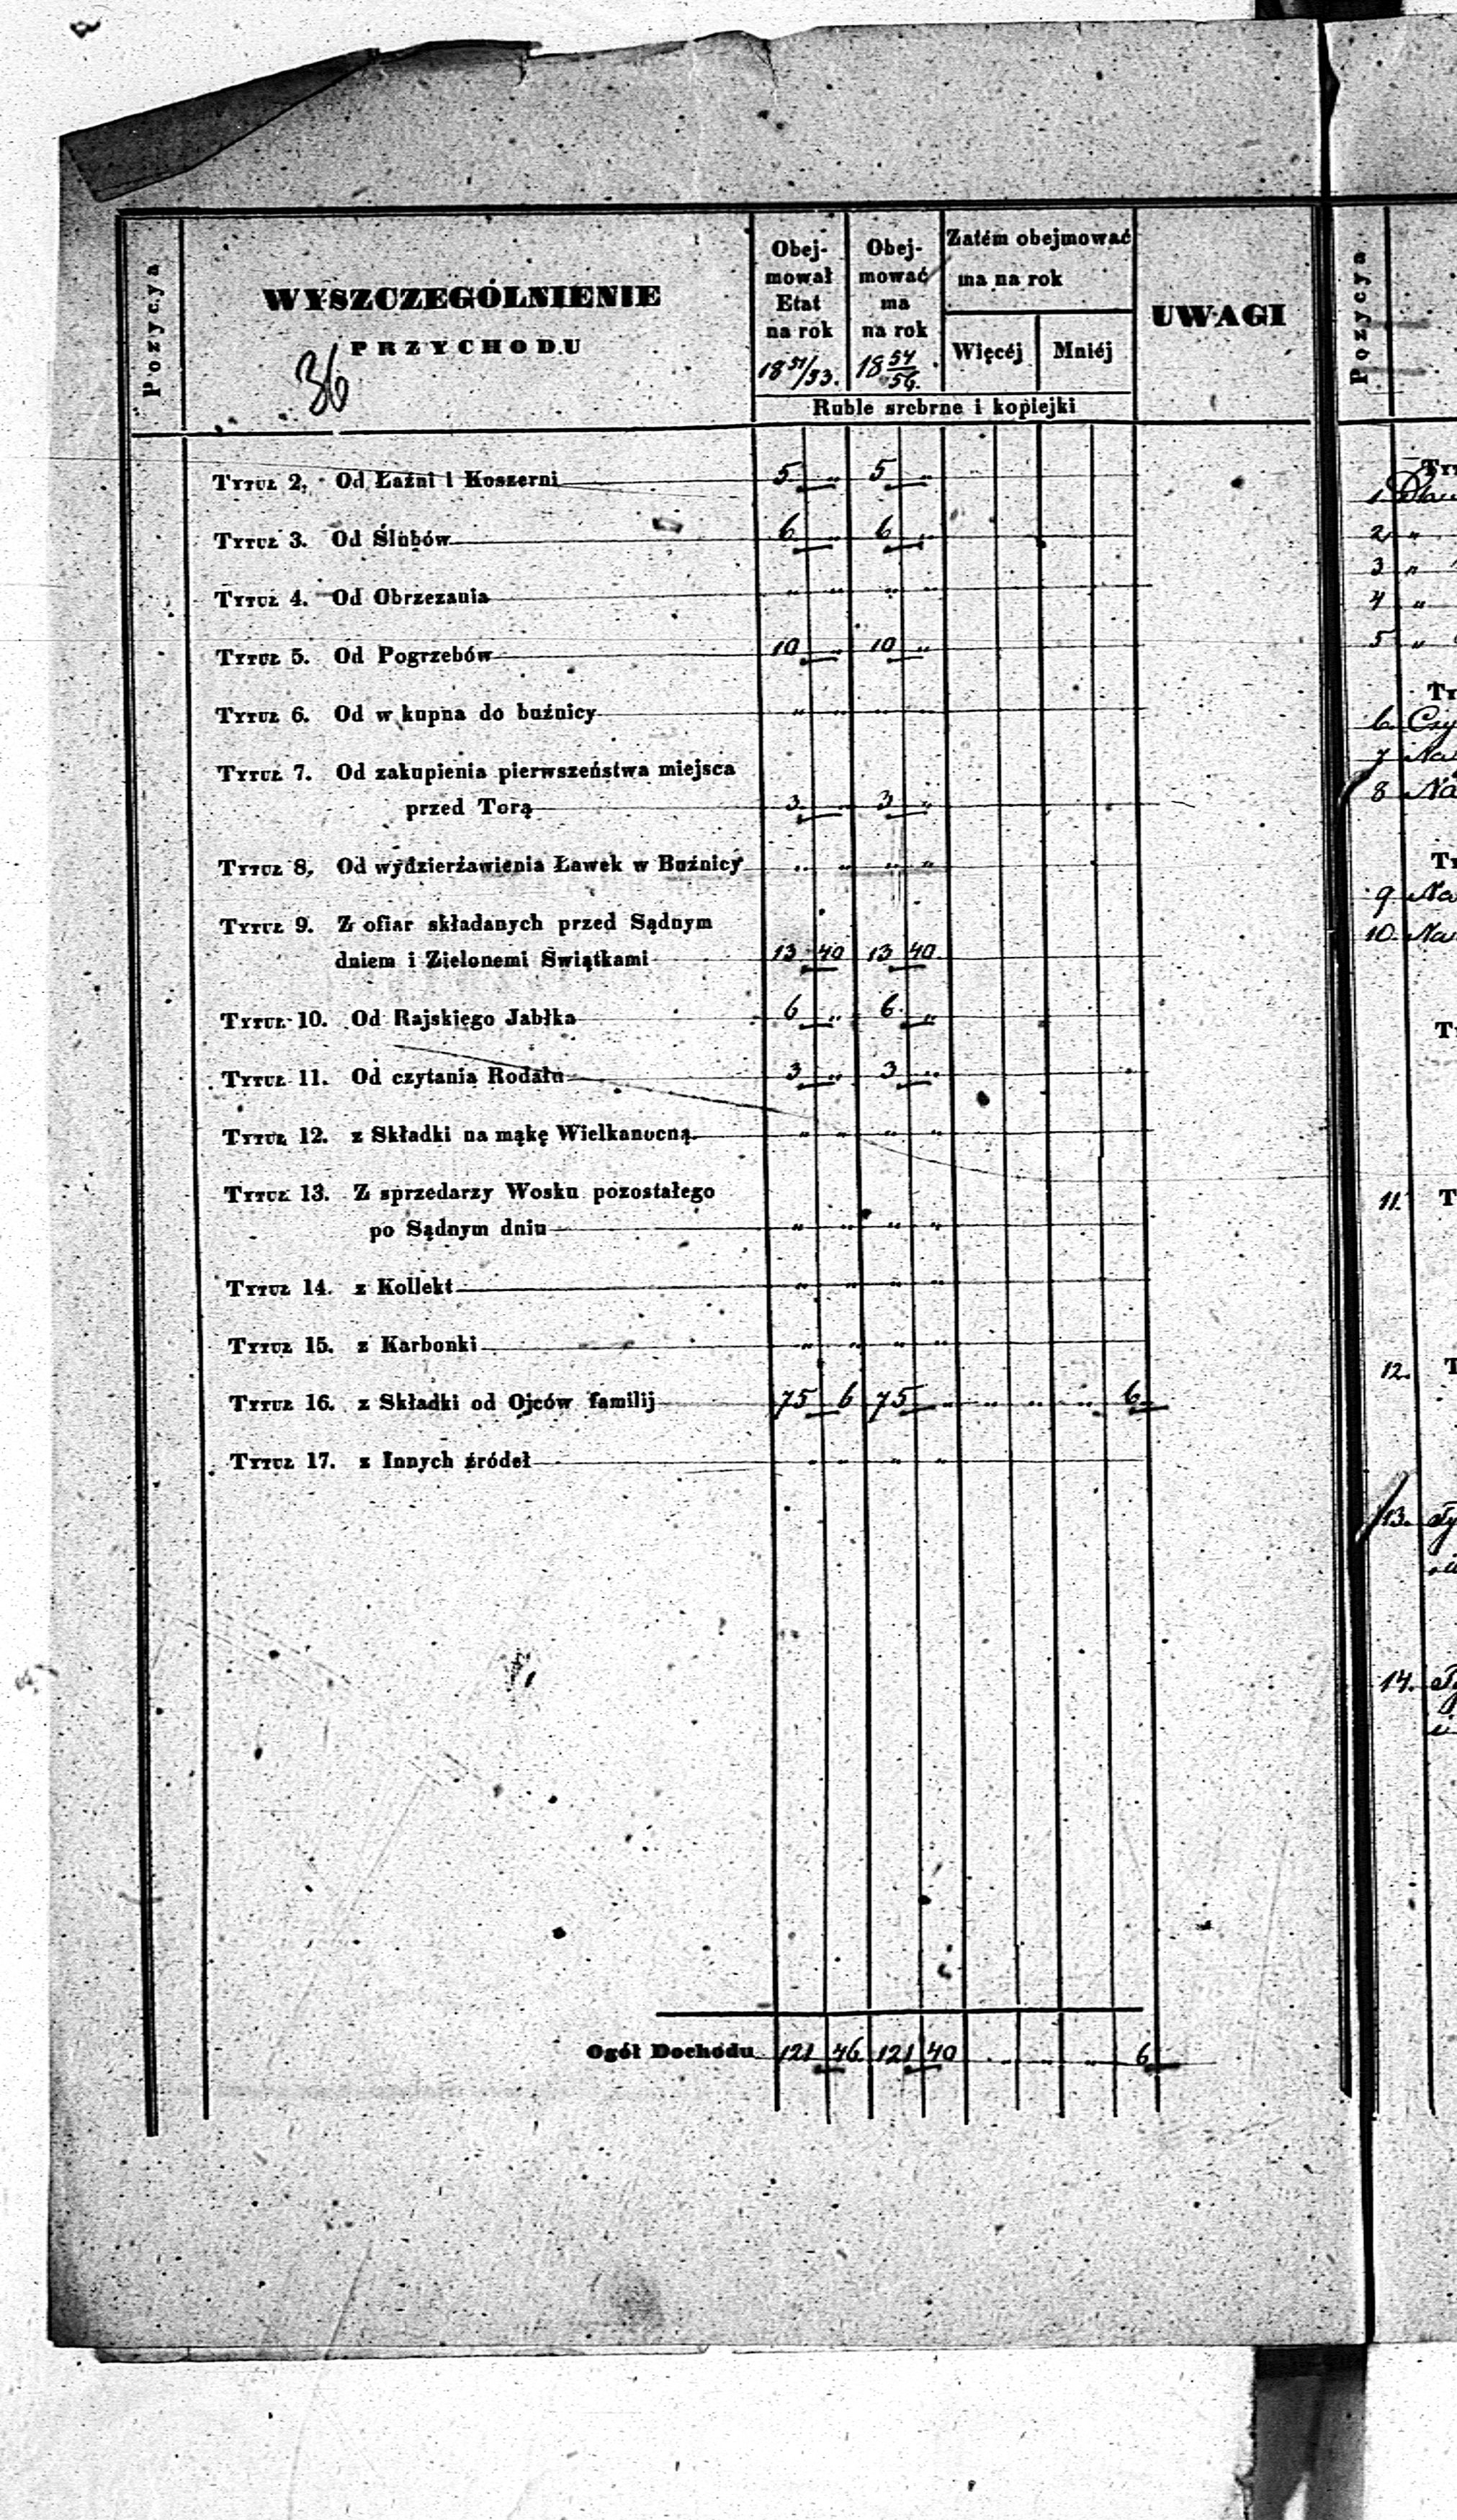 Pozycya
WYSZCZEGÓLNIENIE
PRZYCHODU
36
Obej-
mował
Etat
na rok
18 51/53.
Obej-
mować
ma
na rok
18 54/56.
Zatém obejmować
ma na rok
Więcéj Mniéj
Ruble srebrne i kopiejki
UWAGI
Tytuł 2. Od Łaźni i Koszerni 5 „ 5 „
Tytuł 3. Od Ślubów 6 „ 6 „
Tytuł 4. Od Obrzezania „ „ „ „
Tytuł 5. Od Pogrzebów 10 „ 10 „
Tytuł 6. Od w kupna do buźnicy „ „ „ „
Tytuł 7. Od zakupienia pierwszeństwa miejsca
przed Torą 3 „ 3 „
Tytuł 8. Od wydzierżawienia Ławek w Buźnicy „ „ „ „
Tytuł 9. Z ofiar składanych przed Sądnym
dniem i Zielonemi Świątkami 13 40 13 40
Tytuł 10. Od Rajskiego Jabłka 6 „ 6 „
Tytuł 11. Od czytania Rodału 3 „ 3 „
Tytuł 12. z Składki na mąkę Wielkanocną „ „ „ „
Tytuł 13. Z sprzedarzy Wosku pozostałego
po Sądnym dniu „ „ „ „
Tytuł 14. z Kollekt „ „ „ „
Tytuł 15. z Karbonki „ „ „ „
Tytuł 16. z Składki od Ojców familij 75 6 75 „ „ „ „ 6
Tytuł 17. z Innych źródeł „ „ „ „
Ogół Dochodu 121 46 121 40 „ „ „ 6
Pozycya
1
2 „
3 „
4 „
5 „
6
7 Na
8 Na
9 Na
10. Na
11.
12.
13.
14.